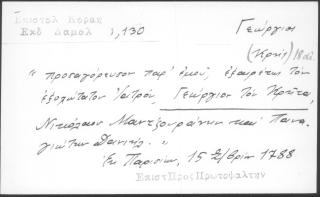 Επιστολ Κοραη
Εκδ Δαμαλ 1,130
Γεώργιος
(Κρής) 18αι.
"προσαγόρευσον παρ' εμού, εξαιρέτως τον
εξοχώτατον Ιατρόν, Γεώργιον τον Κρήτα,
Νικόλαον Μαντζουράνην και Πανα-
γιώτην
"Εν Παρισίοις, 15 Σ/βρίου 1788
ΕπιστΠρος Πρωτοψαλτην